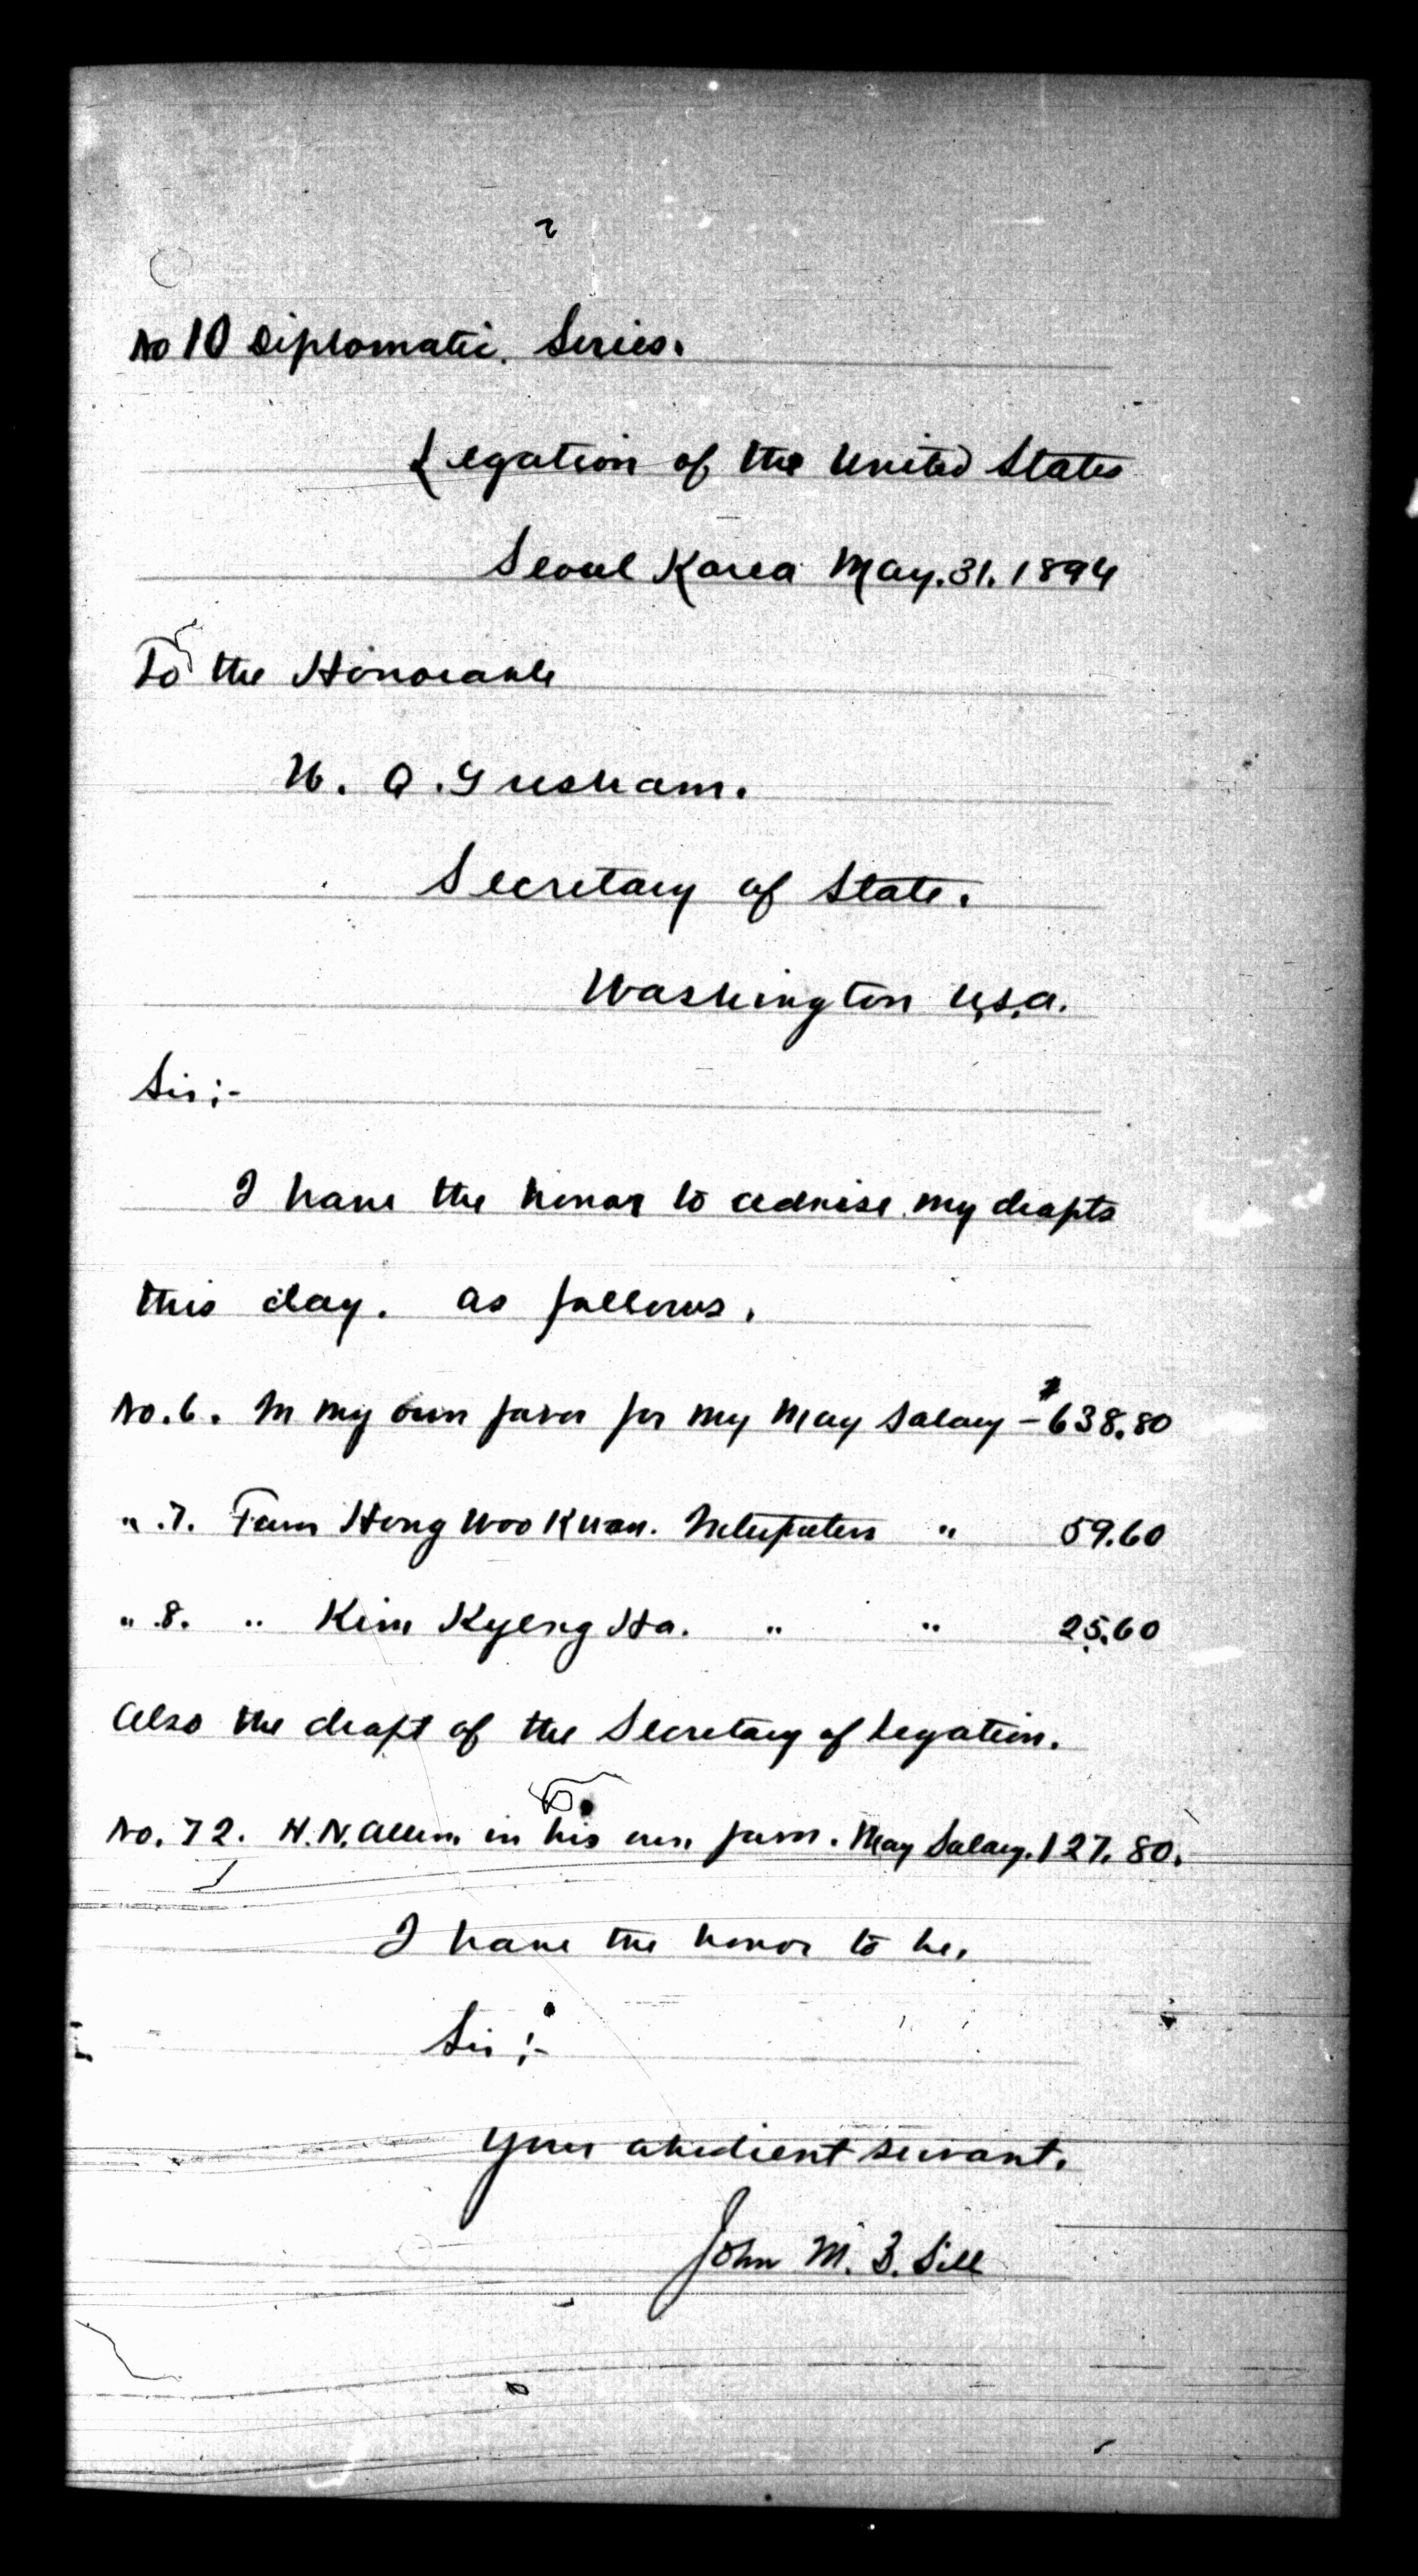 No 10 Diplomatic. Series.
Legation of the United States
Seoul Korea May. 31. 1894
To the Honorable
W. Q. Gresham.
Secretary of State.
Washington U.S.A.
Sir;-
I have the honor to advise my drafts
this day. as follows.
No. 6. In my own favor for my May Salary - $638.80
" .7. Favor Hong Woo Kwan. Interpreters " 59.60
" .8. " Kim Kyeng Ha. " " 25.60
Also the draft of the Secretary of Legation.
No. 72. H. N. Allen. in his own favor. May Salary. 127.80.
I have the honor to be.
Sir;-
Your obedient servant.
John M. B. Sill